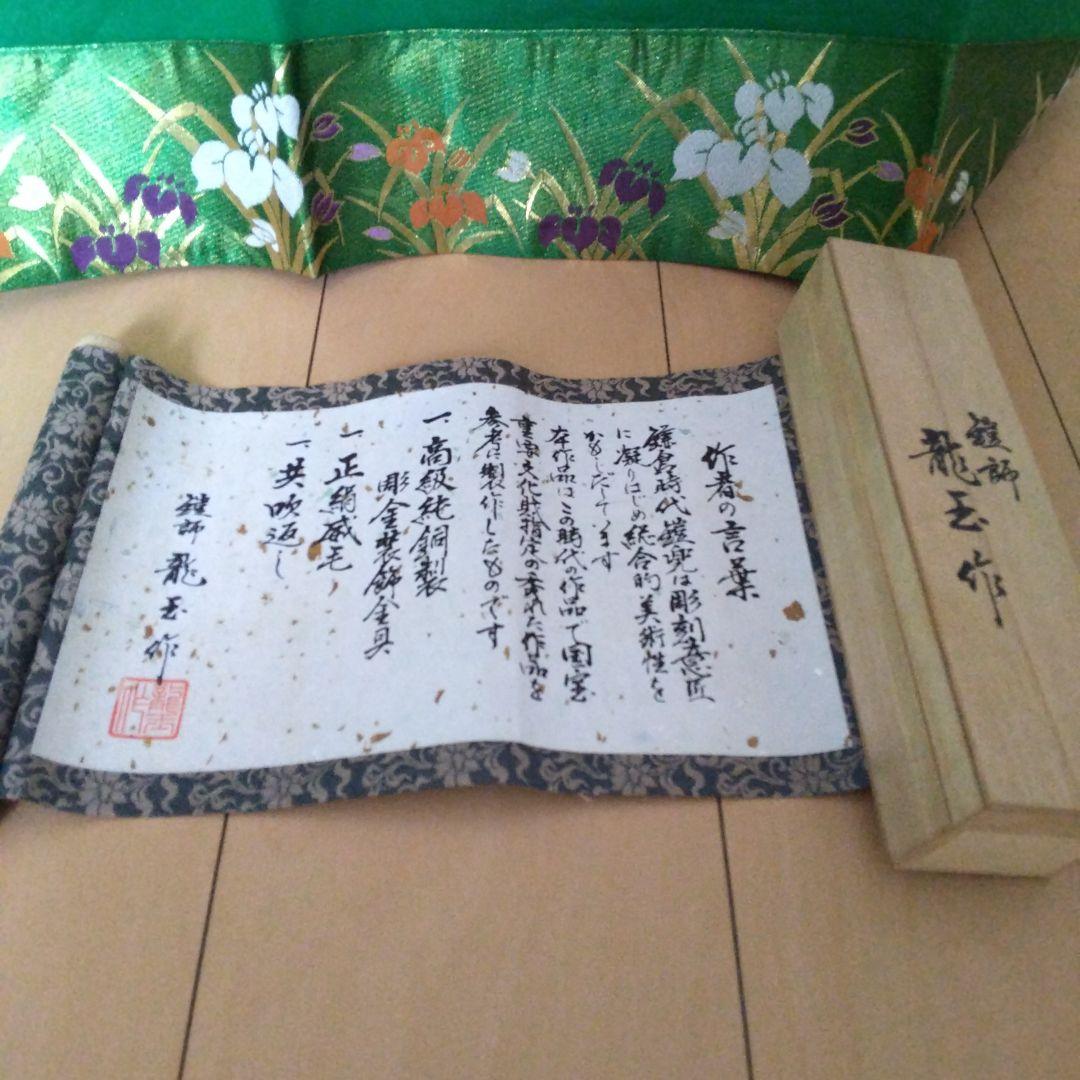 作者の言葉
鎌倉時代鎧兜は彫刻意匠
に凝りはじめ統合的美術性を
かもしだしています
本作品はこの時代の作品で国宝
重要文化財指定の
作品を
参考に製作したものです
一 高級純銅製
彫金装飾金具
一 正絹威毛
一 共吹返し
鎧師 龍玉作
龍玉作
鎧師
龍玉作